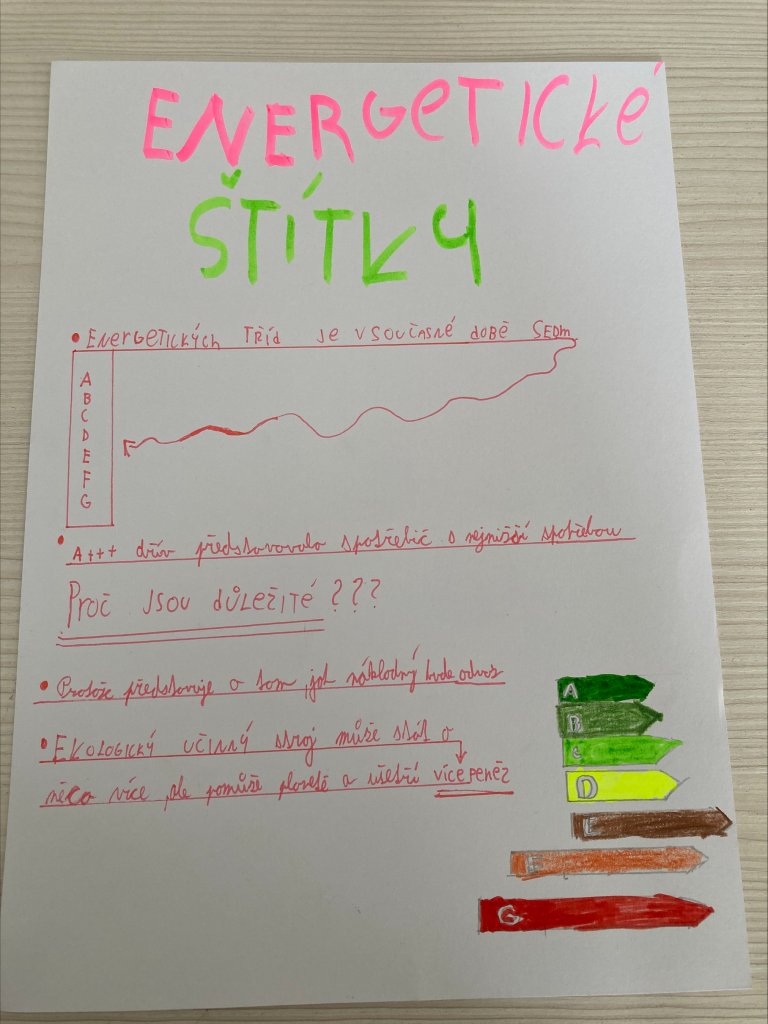 ENERGETICKÉ
ŠTÍTKY
• ENERGETICKÝCH TŘÍD JE V SOUČASNÉ DOBĚ SEDM
A
B
C
D
E
F
G
• A+++ dřív představovalo spotřebič s nejnižší spotřebou
PROČ JSOU DŮLEŽITÉ ???
• Protože představuje o tom, jak nákladný bude odvoz
• EKOLOGICKÝ UČINNÝ stroj může stát o
něco více, ale pomůže planetě a ušetří více peněz
A
B
C
D
E
F
G